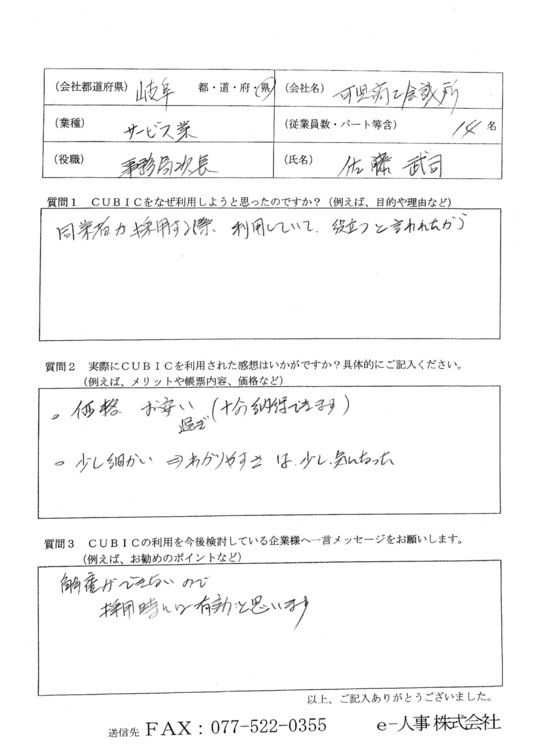 (会社都道府県) 岐阜 都・道・府・県 (会社名) 可児商工会議所
(業種) サービス業 (従業員数・パート等含) 14 名
(役職) 事務局次長 (氏名) 佐藤 武司
質問1 CUBICをなぜ利用しようと思ったのですか?(例えば、目的や理由など)
同業者が採用する際、利用していて、役立つと言われたから
質問2 実際にCUBICを利用された感想はいかがですか?具体的にご記入ください。
(例えば、メリットや帳票内容、価格など)
。価格 お安い (十分納得できます)
過ぎ
。少し細かい ⇒わかりやすさ は、少し、気になった
質問3 CUBICの利用を今後検討している企業様へ一言メッセージをお願いします。
(例えば、お勧めのポイントなど)
解雇ができないので
採用時には有効と思います
以上、ご記入ありがとうございました。
送信先 FAX:077-522-0355 e-人事株式会社